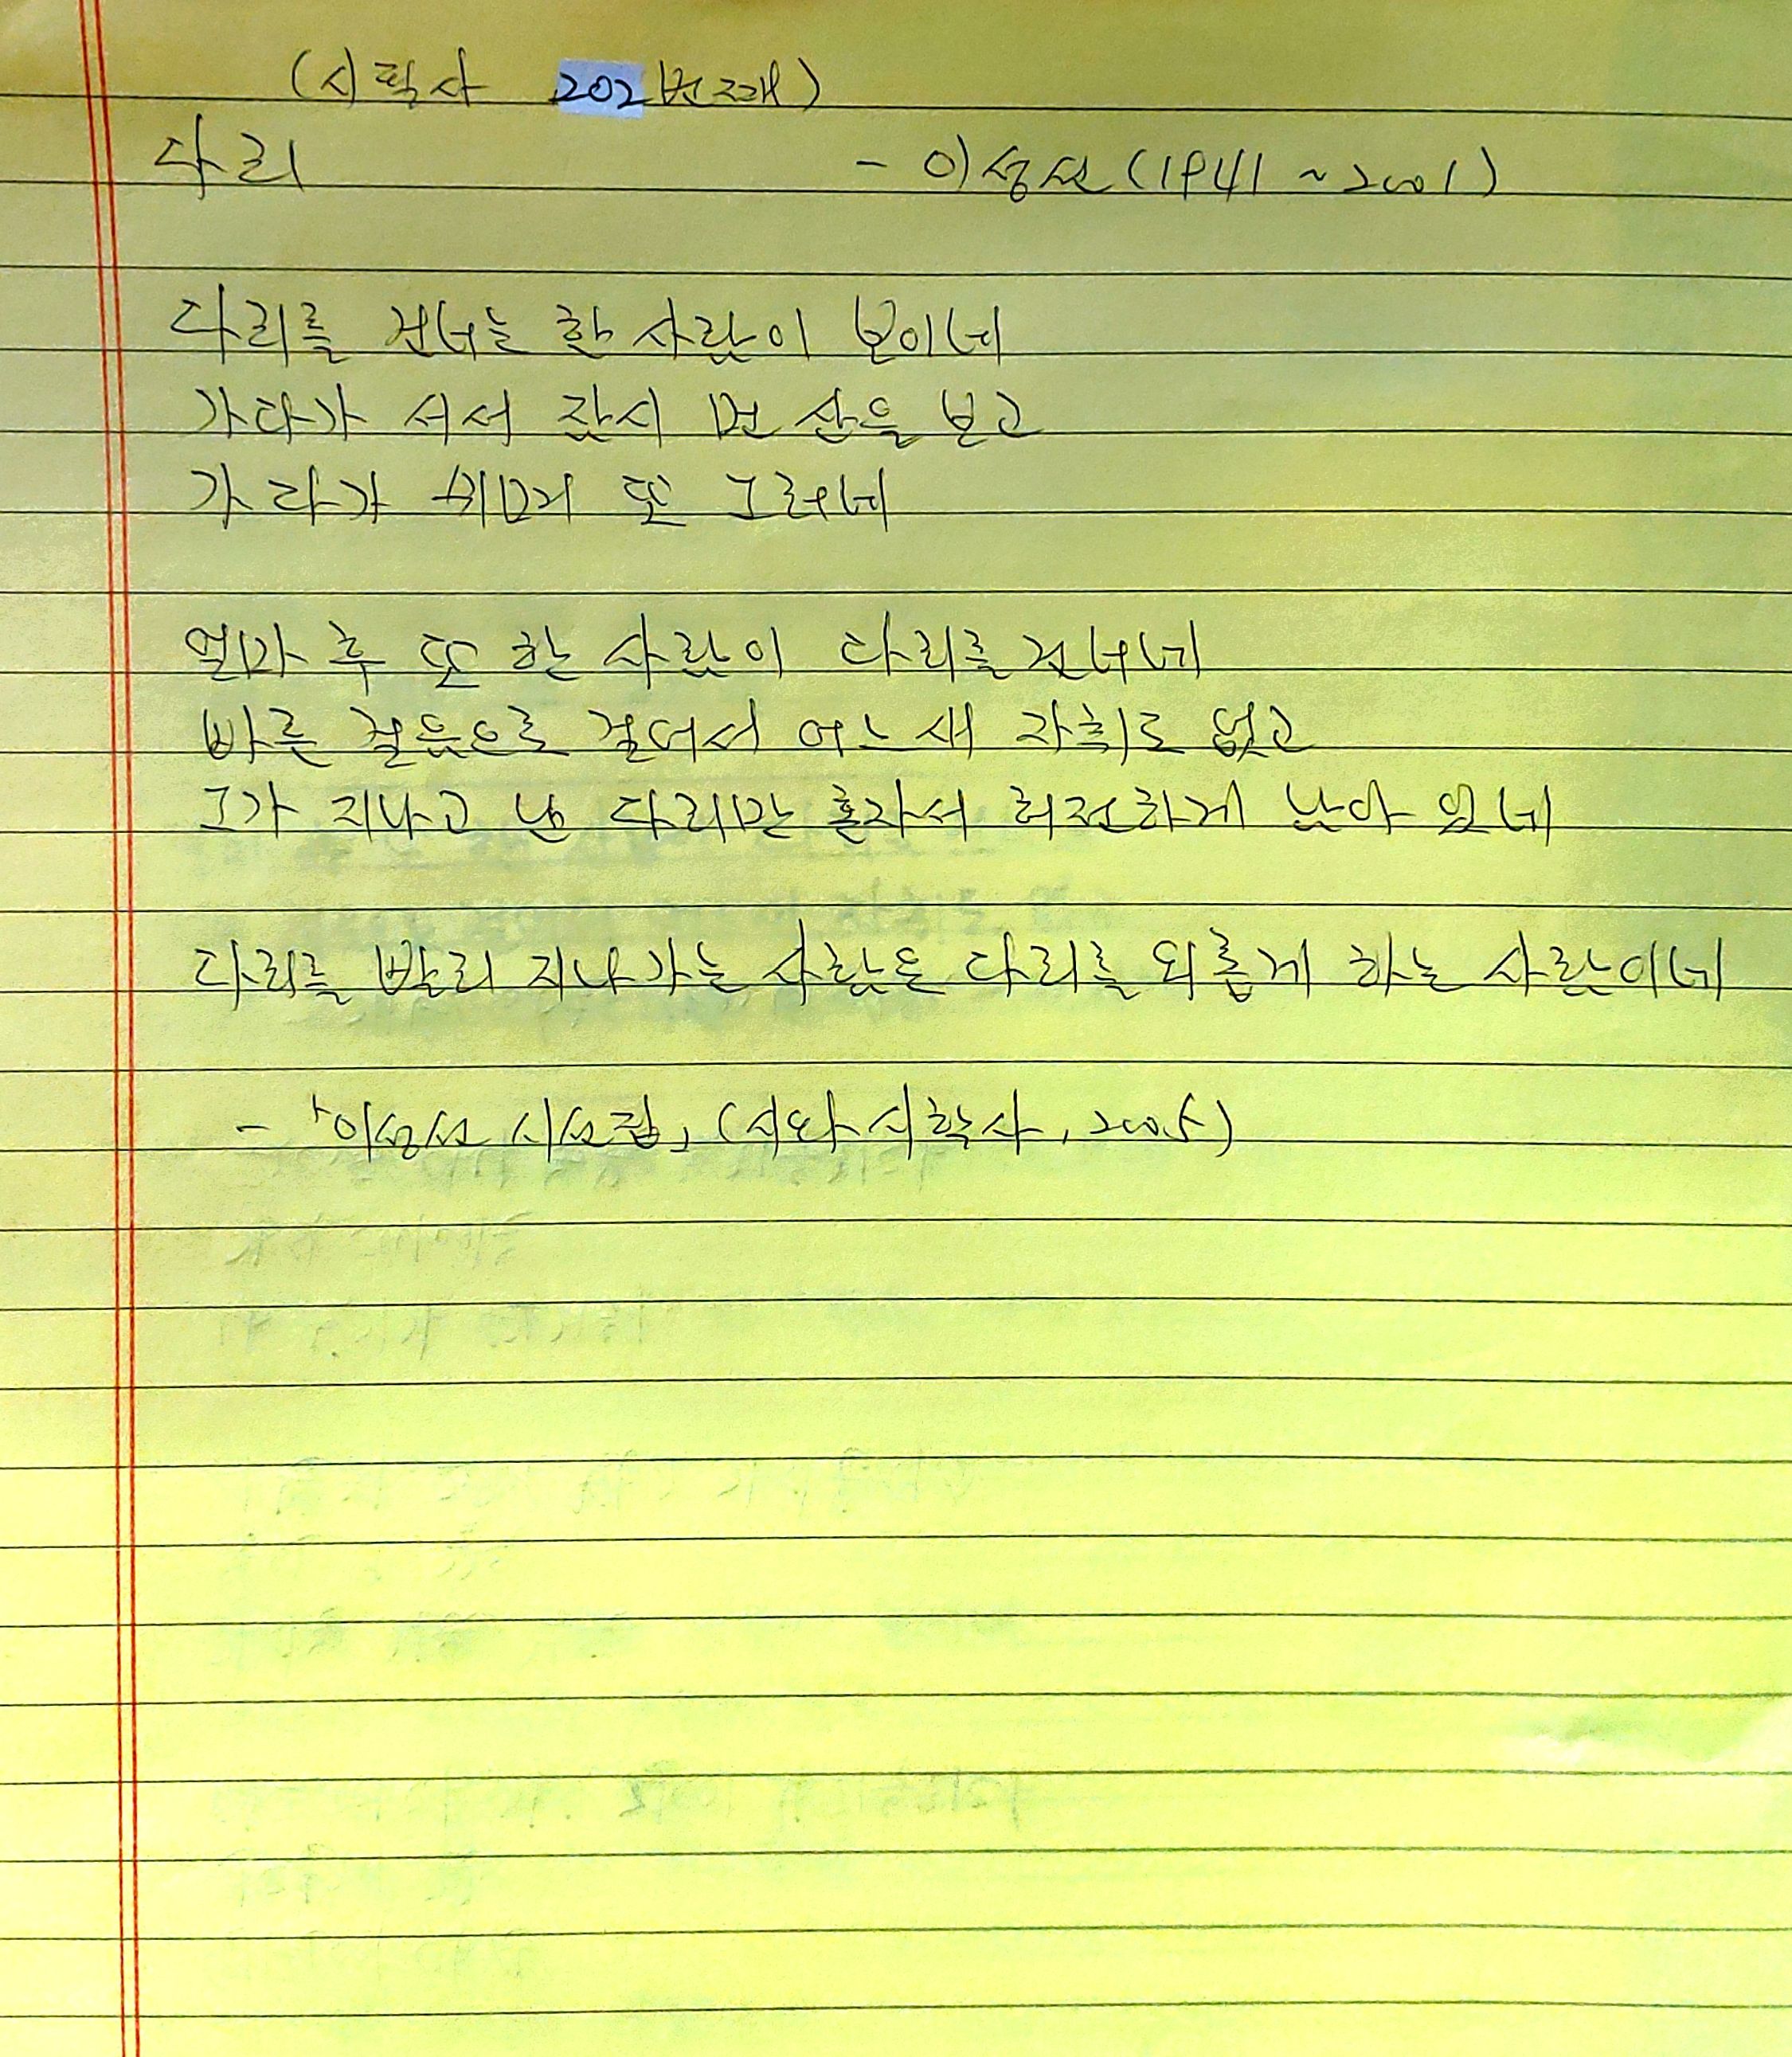 (시픽사 202번째)
다리 - 이성선(1941~2001)
다리를 건너는 한 사람이 보이네
가다가 서서 잠시 먼 산을 보고
가다가 쉬며 또 그러네
얼마 후 또 한 사람이 다리를 건너네
빠른 걸음으로 걸어서 어느새 자취도 없고
그가 지나고 난 다리만 혼자서 허전하게 남아 있네
다리를 빨리 지나가는 사람은 다리를 외롭게 하는 사람이네
- 「이성선 시선집」 (시와시학사, 2005)